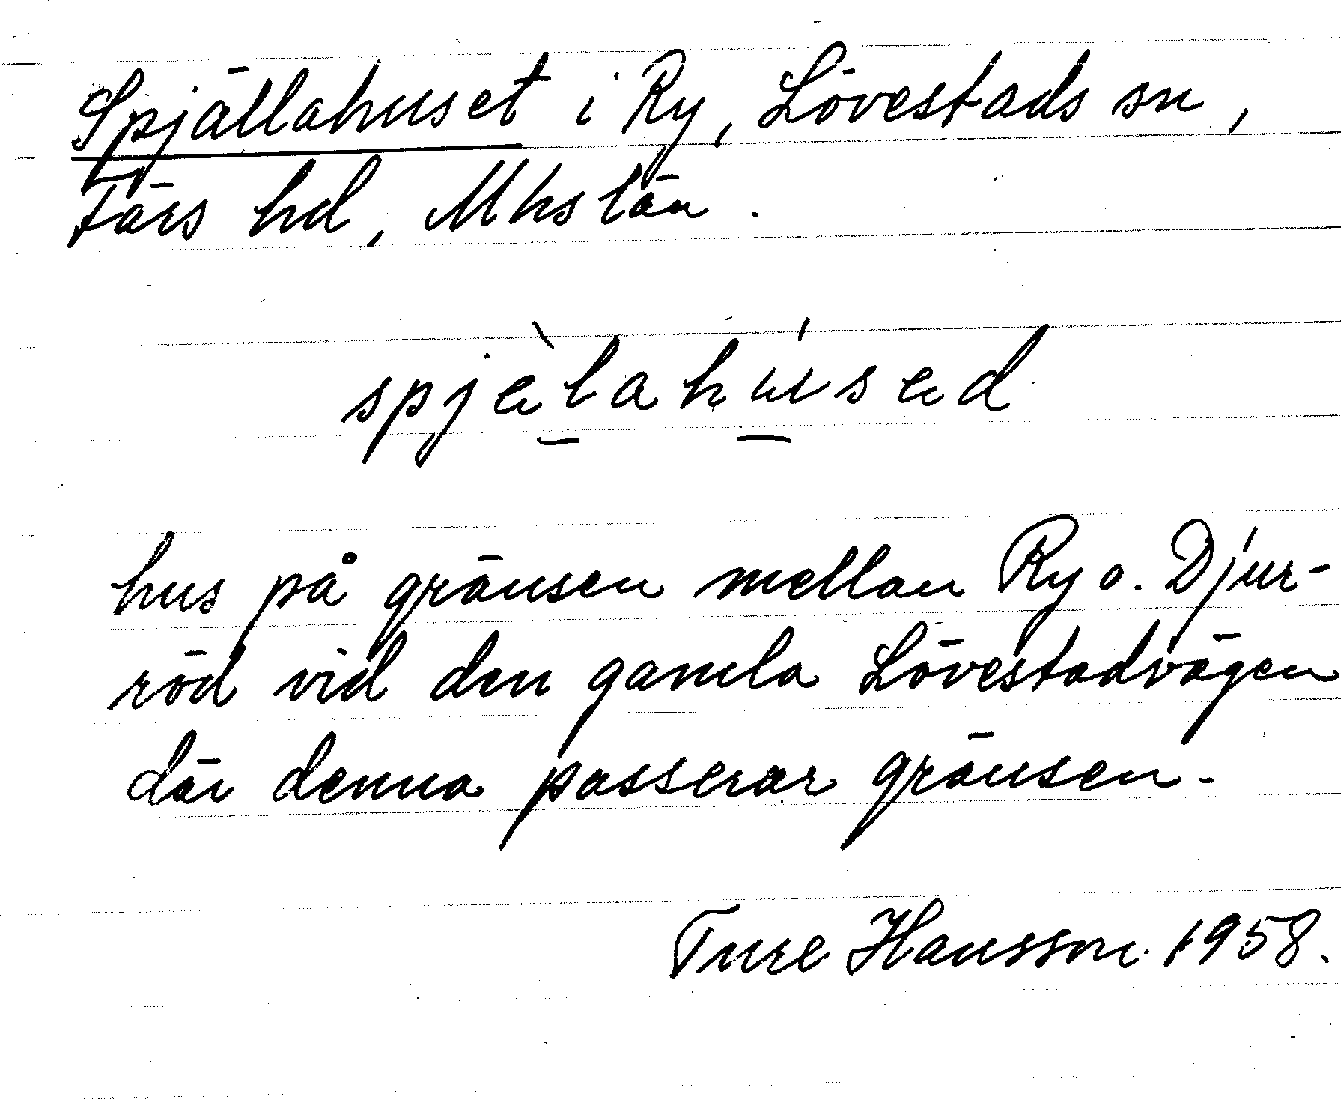 Spjällahuset i Ry, Lövestads sn,
Färs hd, Mhs län.
spjèlahúsed
hus på gränsen mellan Ry o. Djur-
röd vid den gamla Lövestadvägen
där denna passerar gränsen.
Ture Hansson 1958.